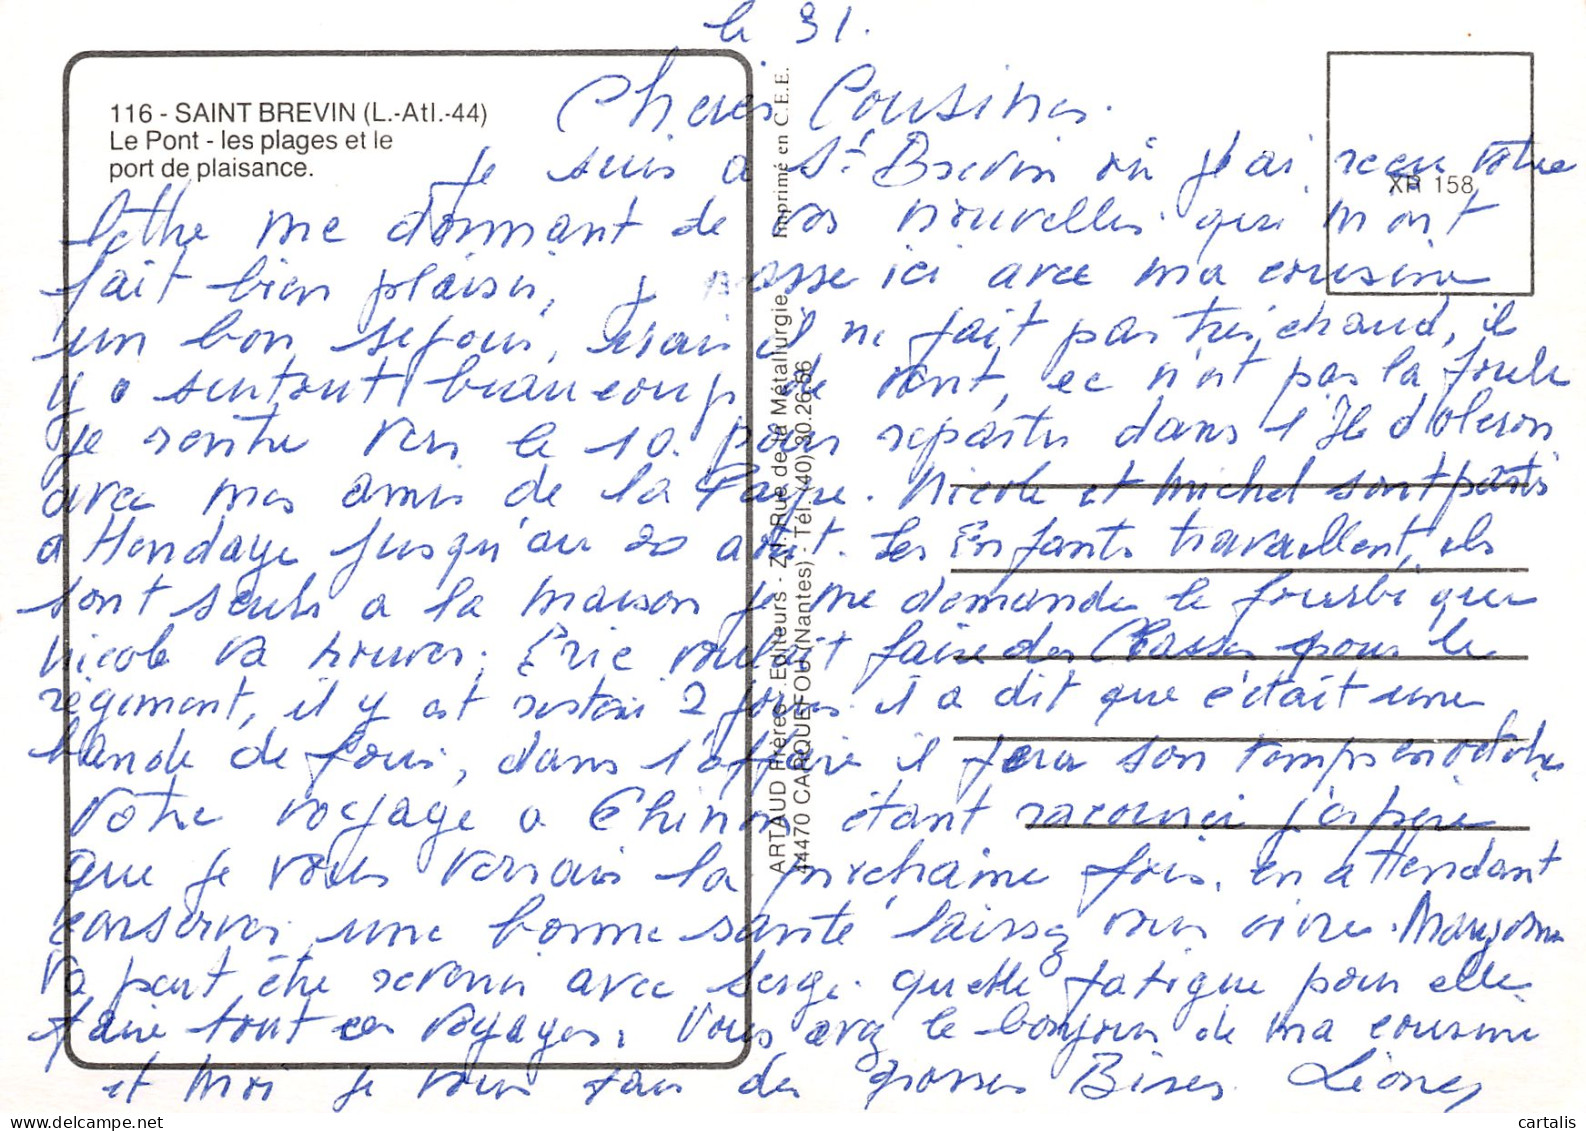 le 31.
116 - SAINT BREVIN (L.-Atl.-44)
Le Pont - les plages et le
port de plaisance.
XR 158
Cheres Cousines.
Je suis a St Brevin où j'ai recu votre
lettre me donnant de vos nouvelles qui m'ont
fait bien plaisir, je passe ici avec ma cousine
un bon sejour, mais il ne fait pas très chaud, il
y a surtout beaucoup de vent, ce n'est pas la foule
je rentre vers le 10. pour repartir dans l'Ile d'oleron
avec mes amis de la . Nicole et Michel sont partis
a Hendaye jusqu'au 20 août. Les Enfants travaillent, ils
sont seuls a la maison je me demande le fourbi que
Nicole va trouver. Eric voulait faire des Classes pour le
régiment, il y est 2 jours il a dit que c'était une
bande de fous, dans l'affaire il fera son temps en octobre
Votre voyage a Chinon étant racourci j'espère
que je vous verrais la prochaine fois. en attendant
conserver une bonne santé laissez vous vivre.
va peut être revenir avec Serge. quelle fatigue pour elle
faire tout ces voyages. Vous avez le bonjour de ma cousine
et moi je vous fais de grosses Bises.
ARTAUD Frères . Editeurs - Z.I. Rue de la Métallurgie Imprimé en C.E.E.
44470 CARQUEFOU (Nantes) - Tél. (40) 30.26.56
cartalis